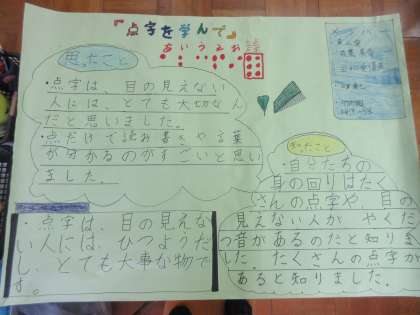 『点字を学んで』
あいうえお
思ったこと
・点字は、目の見えない
人には、とても大切なん
だと思いました。
・点だけで読み書きや言葉
が分かるのがすごいと思い
ました。
・点字は、目の見えな
い人には、ひつようだ
し、とても大事な物で
す。
メンバー
知ったこと
・自分たちの
身の回りはたく
さんの点字や、目の
見えない人が、やくだ
つ音があるのだと知りま
した。たくさんの点字が
あると知りました。